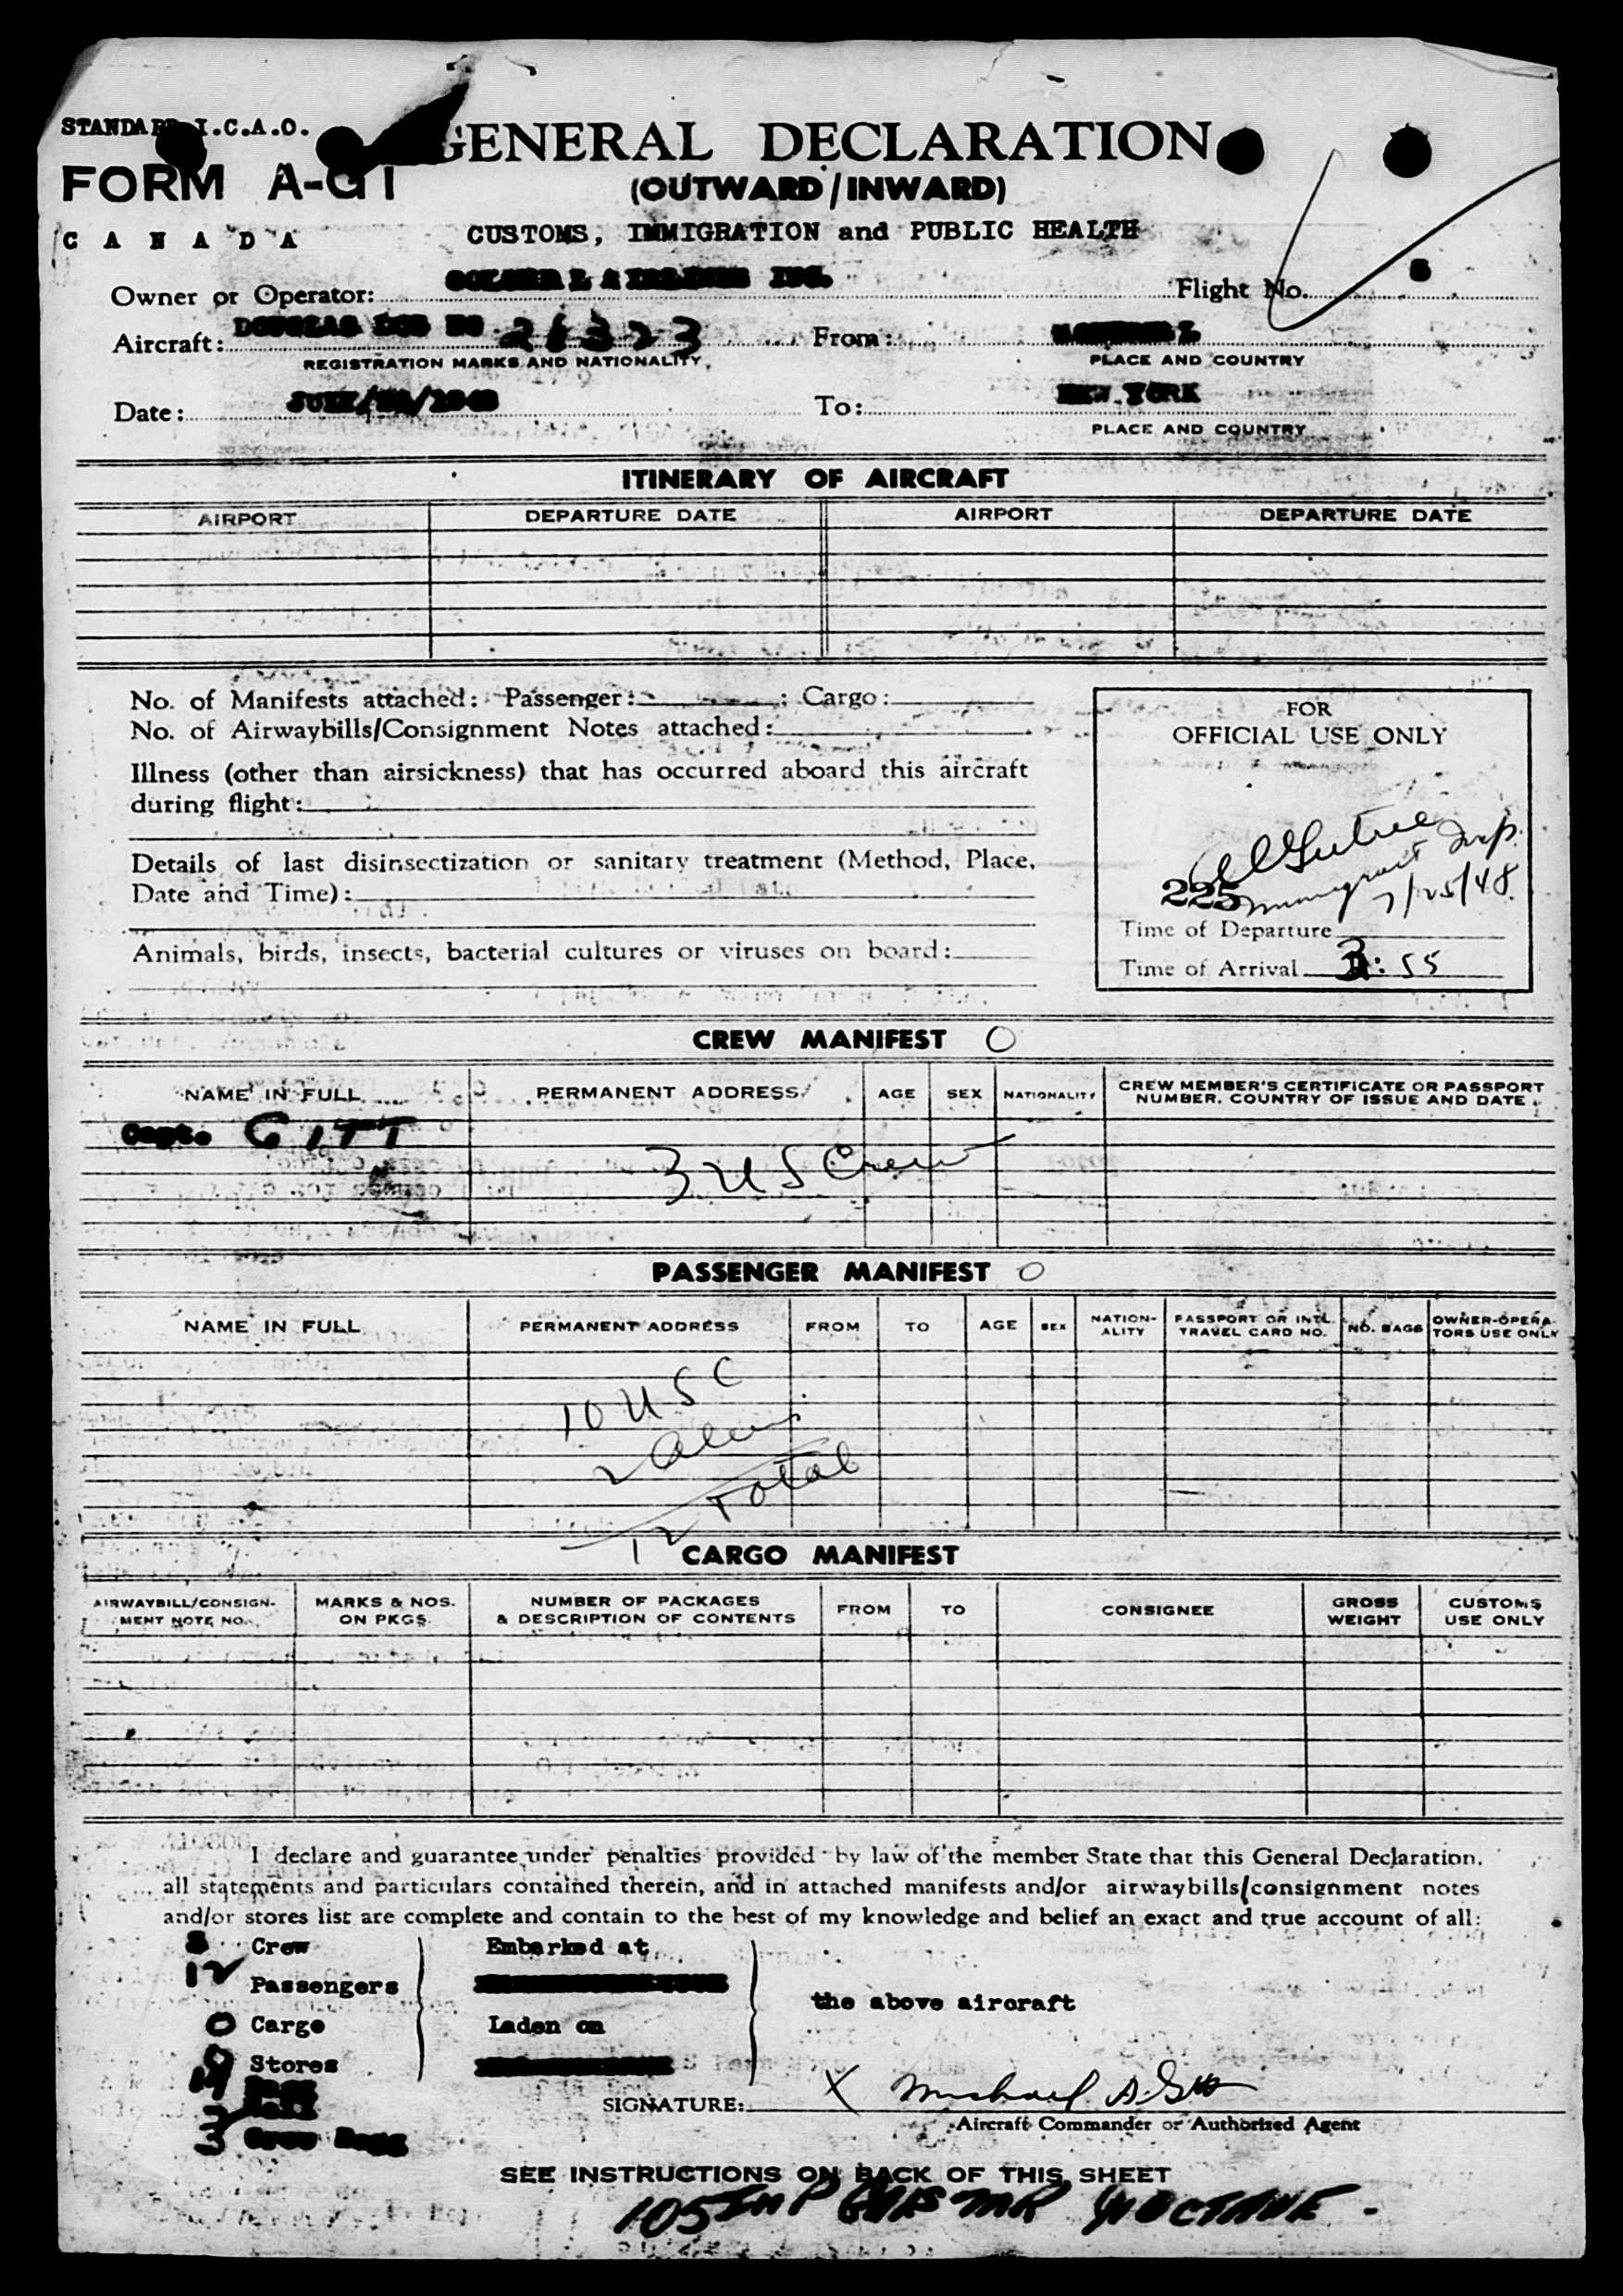 STANDARD I.C.A.O.
GENERAL DECLARATION
FORM A-G1
(OUTWARD/INWARD)
CANADA
CUSTOMS, IMMIGRATION and PUBLIC HEALTH
Owner or Operator: INC.
Flight No.
Aircraft: DOUGLAS
From:
REGISTRATION MARKS AND NATIONALITY
PLACE AND COUNTRY
Date:
To: NEW YORK
PLACE AND COUNTRY
ITINERARY OF AIRCRAFT
AIRPORT DEPARTURE DATE AIRPORT DEPARTURE DATE
No. of Manifests attached: Passenger: ; Cargo:
No. of Airwaybills/Consignment Notes attached:
Illness (other than airsickness) that has occurred aboard this aircraft
during flight:
Details of last disinsectization or sanitary treatment (Method, Place,
Date and Time):
Animals, birds, insects, bacterial cultures or viruses on board:
FOR
OFFICIAL USE ONLY
Insp.
225 Immigrant 7/25/48
Time of Departure
Time of Arrival 3:55
CREW MANIFEST
NAME IN FULL PERMANENT ADDRESS AGE SEX NATIONALITY CREW MEMBER'S CERTIFICATE OR PASSPORT
NUMBER, COUNTRY OF ISSUE AND DATE
Capt. GITT
3 US Crew
PASSENGER MANIFEST
NAME IN FULL PERMANENT ADDRESS FROM TO AGE SEX NATION-
ALITY PASSPORT OR INTL.
TRAVEL CARD NO. NO. BAGS OWNER-OPERA-
TORS USE ONLY
10 USC
2 Aliens
12 Total
CARGO MANIFEST
AIRWAYBILL/CONSIGN-
MENT NOTE NO. MARKS & NOS.
ON PKGS. NUMBER OF PACKAGES
& DESCRIPTION OF CONTENTS FROM TO CONSIGNEE GROSS
WEIGHT CUSTOMS
USE ONLY
I declare and guarantee under penalties provided by law of the member State that this General Declaration,
all statements and particulars contained therein, and in attached manifests and/or airwaybills/consignment notes
and/or stores list are complete and contain to the best of my knowledge and belief an exact and true account of all:
Crew
12 Passengers
0 Cargo
Stores
3 Crew Bags
Embarked at
Laden on
the above aircraft
SIGNATURE: X Michael A. Gitt
Aircraft Commander or Authorized Agent
SEE INSTRUCTIONS ON BACK OF THIS SHEET
105 IMP GALS OCTANE